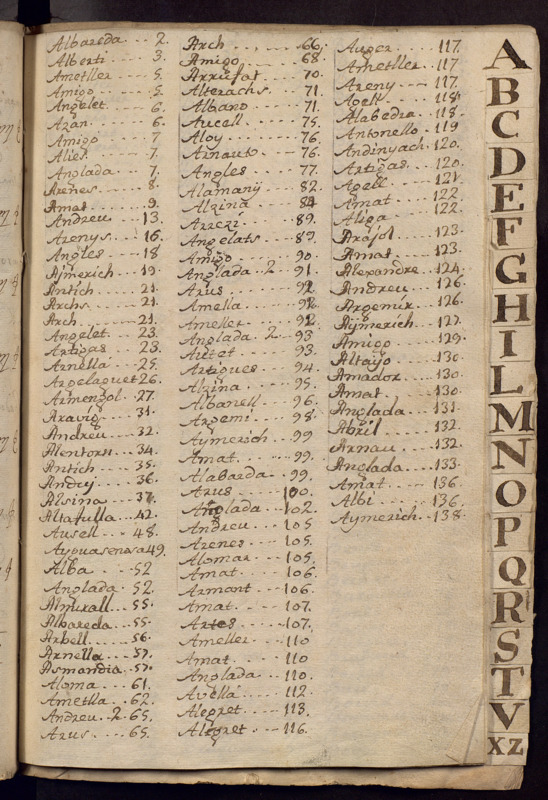 Albareda .. 2.
Alberti ... 3.
Ametller ... 5.
Amigo .... 5.
Angelet ... 6.
Azán ... 6.
Amigo 7
Alier ... 7.
Anglada ... 7.
Arenes ... 8.
Amat .... 9.
Andreu ... 13.
Arenys ... 16.
Angles ... 18
Aymerich ... 19.
Antich .... 21.
Archs .... 21.
Arch .... 21.
Angelet .. 23.
Artigas .. 23.
Arnella ... 25.
Argelaguet 26.
Armengol .. 27.
Aravig ... 31.
Andreu ... 32.
Alentorn .. 34.
Antich ... 35.
Andry ... 36.
Alsina ... 37.
Altafulla .. 42.
Ausell .. 48.
Ayguasenosa 49.
Alba ... 52
Anglada .. 52.
Almirall ... 55.
Albareda ... 55.
Arbell ... 56.
Arnella ... 57.
Asmandia ... 57.
Aloma .... 61.
Ametlla ... 62.
Andreu . 2. 65.
Arus .... 65.
Arch .... 66.
Amigo ... 68.
Arrufat ... 70.
Alterachs .. 71.
Albano ... 71.
Aucell ... 75.
Aloy .... 76.
Arnauto ... 76.
Angles ... 77.
Alamany .. 82.
Alzina ... 84
Arezi ... 89.
Angelats .. 89.
Amigo ... 90
Anglada . 2 .. 91
Arus .... 92.
Amella ... 92.
Ameller ... 92.
Anglada . 2 .. 93
Aucet .... 93.
Artigues ... 94.
Alzina .... 95.
Albanell ... 96.
Argemi ... 98.
Aymerich .. 99
Amat .... 99.
Alabarda .. 99.
Arus .... 100.
Anglada ... 102.
Andreu ... 105
Arenes ... 105.
Alomar ... 105.
Amat .... 106.
Armant ... 106.
Amat .... 107.
Artes .... 107.
Ameller ... 110
Amat .... 110
Anglada ... 110.
Avella ... 112
Alegret ... 113.
Alegret ... 116.
Auger ... 117.
Ametller .. 117
Areny ... 117.
Agell ... 118.
Alabedra .. 118.
Antonello .. 119
Andinyach . 120.
Artigas .. 120.
Agell ... 121.
Amat .... 122
Aliga .... 122.
Arajol ... 123.
Amat .... 123.
Alexandre .. 124.
Andreu ... 126.
Argemir .. 126.
Aymerich .. 127.
Amigo ... 129.
Altayo ... 130
Amador ... 130.
Amat .... 130.
Anglada ... 131.
Abril .... 132.
Arnau ... 132.
Anglada ... 133.
Amat .... 136.
Albi .... 136.
Aymerich .. 138.
A
B
C
D
E
F
G
H
I
L
M
N
O
P
Q
R
S
T
V
XZ